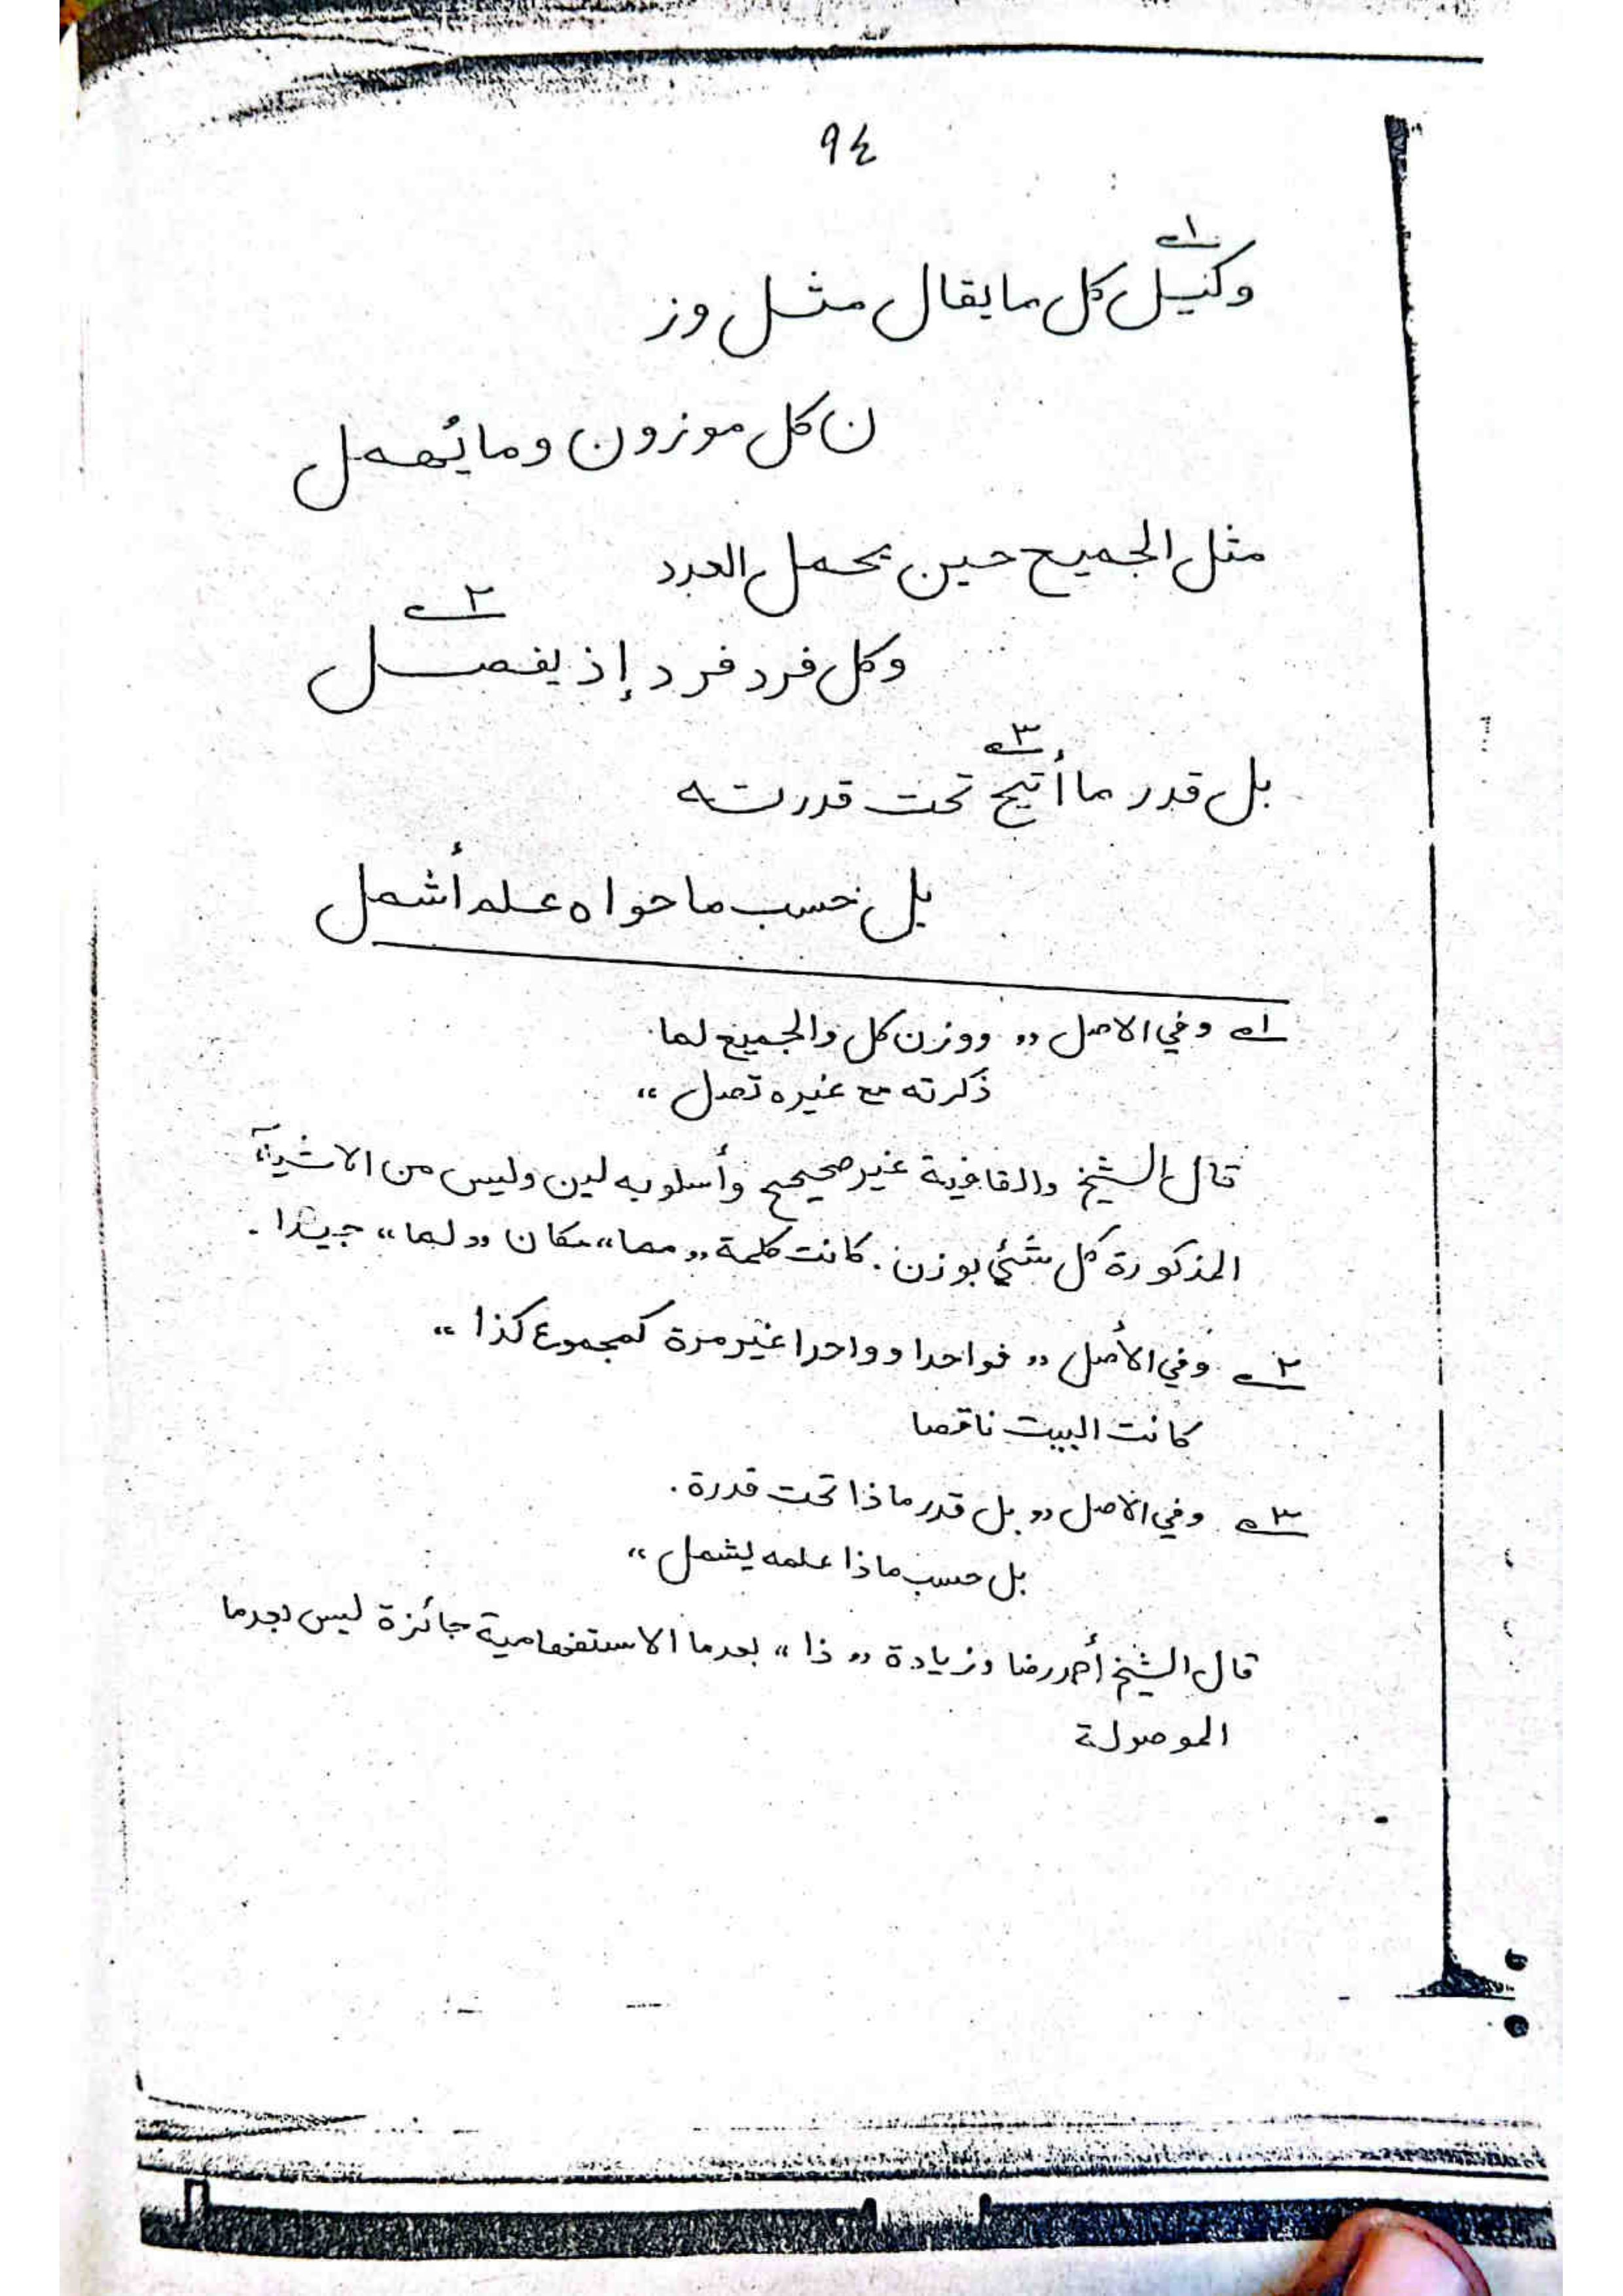 ٩٤
١ــه
وكيل كل ما يقال مثل وز
ن كل موزون وما يُهمل
مثل الجميع حين يحمل العدد
٢ــه
وكل فرد فرد إذ يفصل
٣ــه
بل قدر ما أُتيح تحت قدرته
بل حسب ما حواه علم أشمل
١ــه وفي الاصل ,, ووزن كل والجميع لما
ذكرته مع غيره تصل ،،
قال الشيخ والقافية غير صحيح وأسلوبه لين وليس من الاشياء
المذكورة كل شئي بوزن. كانت كلمة ,, مما ،، مكان ,, لما ،، جيدا.
٢ــه وفي الأصل ,, فواحدا وواحدا غير مرة كمجموع كذا ،،
كانت البيت ناقصا
٣ــه وفي الاصل ,, بل قدر ماذا تحت قدرة.
بل حسب ماذا علمه يشمل ،،
قال الشيخ أحمد رضا وزيادة ,, ذا ،، بعد ما الاستفهامية جائزة ليس بعد ما
الموصولة